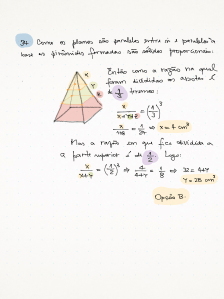 34. Como os planos são paralelos entre si e paralelos à
base as pirâmides formadas são sólidos proporcionais:
Então como a razão na qual
foram divididas as arestas é
de 1/3 temos:
x
y
z
x/(x+y+z) = (1/3)³
x/108 = 1/27 ⇒ x = 4 cm³
Mas a razão em que fica dividida
a parte superior é de 1/2. Logo:
x/(x+y) = (1/2)³ ⇒ 4/(4+y) = 1/8 ⇒ 32 = 4+y
y = 28 cm³
Opção B.